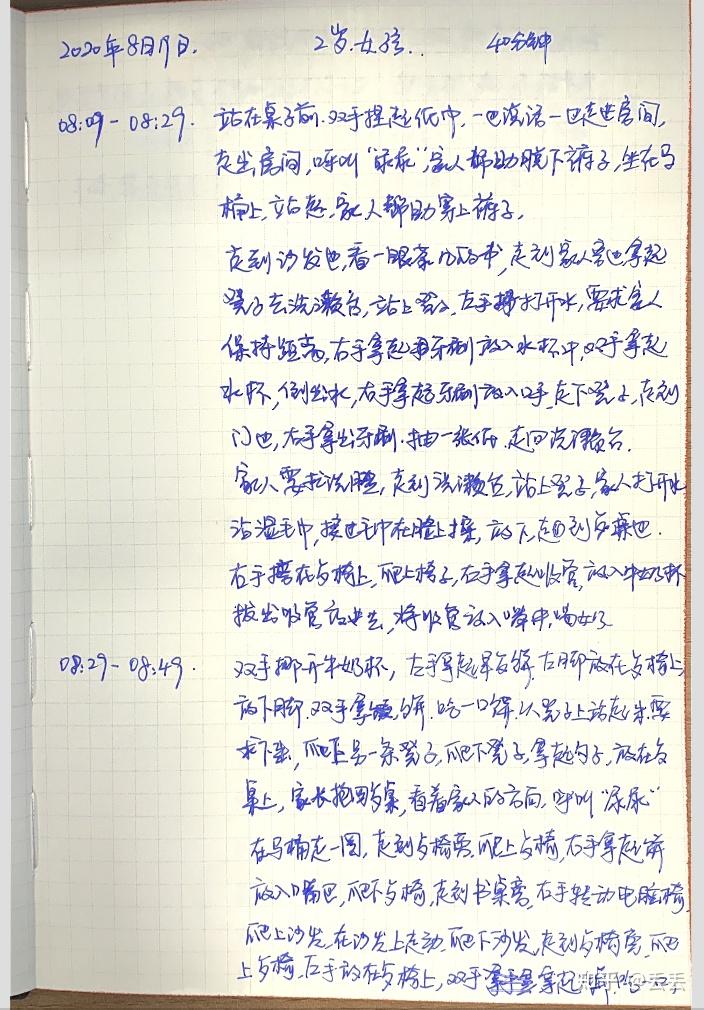 2020年8月19日. 2岁.女孩.. 40分钟
08:09-08:29. 站在桌子前.双手捏起纸巾,一边说话一边走进房间,
走出房间,呼叫“尿尿”,家人帮助脱下裤子,坐在马
桶上,站起,家人帮助穿上裤子.
走到沙发边,看一眼茶几的书,走到家人旁边,拿起
凳子去洗漱台,站上凳子,左手打开水,要求家人
保持距离,右手拿起牙刷放入水杯中,双手拿起
水杯,倒出水,右手拿起牙刷放入口中,走下凳子,走到
门边,右手拿出牙刷.抽一张纸.走回洗漱台.
家人要求洗脸,走到洗漱台,站上凳子,家人打开水
沾湿毛巾,接过毛巾在脸上擦,放下,走回到餐桌边.
右手撑在餐椅上,爬上椅子,右手拿起吸管,放入牛奶杯
拔出吸管,将吸管放入嘴中,喝奶
08:29-08:49. 双手挪开牛奶杯,右手拿起早餐饼.右脚放在餐椅上
放下脚.双手拿饼.吃一口饼.从凳子上站起来.要
求下来,爬上另一条凳子,爬下凳子,拿起勺子,放在餐
桌上,家长抱回餐桌,看着家人的方向.呼叫“尿尿”
在马桶走一圈,走到餐椅旁.爬上餐椅,右手拿起饼
放入嘴巴,爬下餐椅,走到书桌旁,右手转动电脑椅,
爬上沙发,在沙发上走动.爬下沙发,走到餐椅旁.爬
上餐椅.左手放在餐椅上,双手拿起饼.吃一口,
知乎 @丢丢